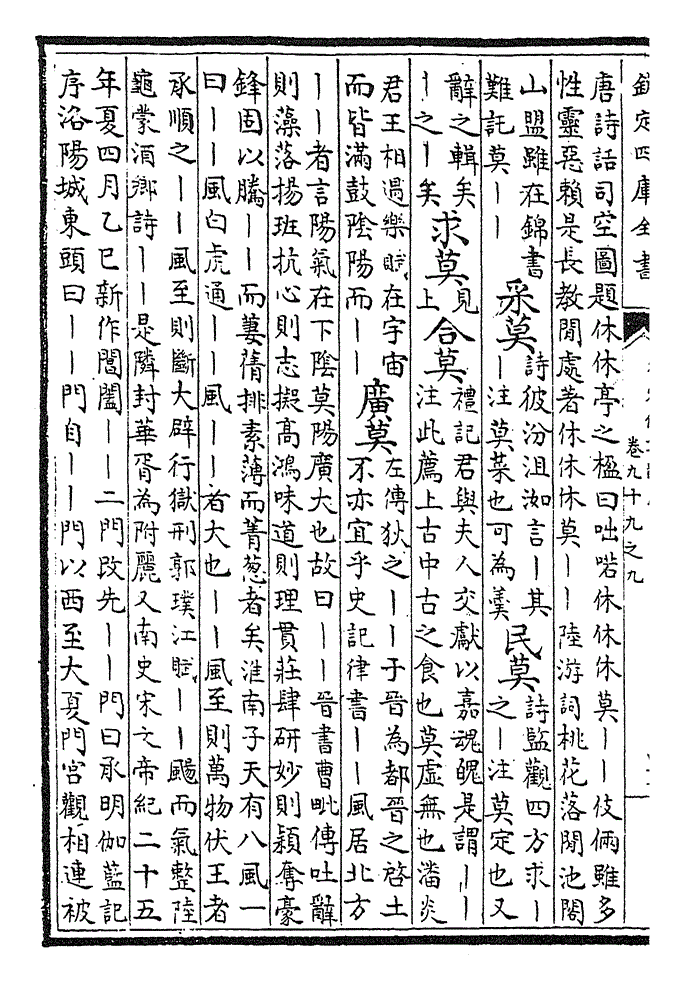 欽定四庫全書
卷九十九之九
唐詩話司空圖題休休亭之楹曰咄喏休休休莫丨丨伎倆雖多
性靈惡賴是長教閒處著休休休莫丨丨陸游詞桃花落閒池閣
山盟雖在錦書難託莫丨丨 采莫 詩彼汾沮洳言丨其丨注莫菜也可為羹 民莫 詩監觀四方求丨之丨注莫定也又
辭之輯矣丨之丨矣 求莫 見上 合莫 禮記君與夫人交獻以嘉魂魄是謂丨丨注此薦上古中古之食也莫虛無也潘炎
君王相遇樂賦在宇宙而皆滿鼓陰陽而丨丨 廣莫 左傳狄之丨丨于晉為都晉之啓土不亦宜乎史記律書丨丨風居北方
丨丨者言陽氣在下陰莫陽廣大也故曰丨丨晉書曹毗傳吐辭
則藻落揚班抗心則志擬高鴻味道則理貫莊肆研妙則穎奪豪
鋒固以騰丨丨而萋蒨排素薄而菁蔥者矣淮南子天有八風一
曰丨丨風白虎通丨丨風丨丨者大也丨丨風至則萬物伏王者
承順之丨丨風至則斷大辟行獄刑郭璞江賦丨丨颺而氣整陸
龜蒙酒鄉詩丨丨是隣封華胥為附麗又南史宋文帝紀二十五
年夏四月乙巳新作閶闔丨丨二門改先丨丨門曰承明伽藍記
序洛陽城東頭曰丨丨門自丨丨門以西至大夏門宮觀相連被